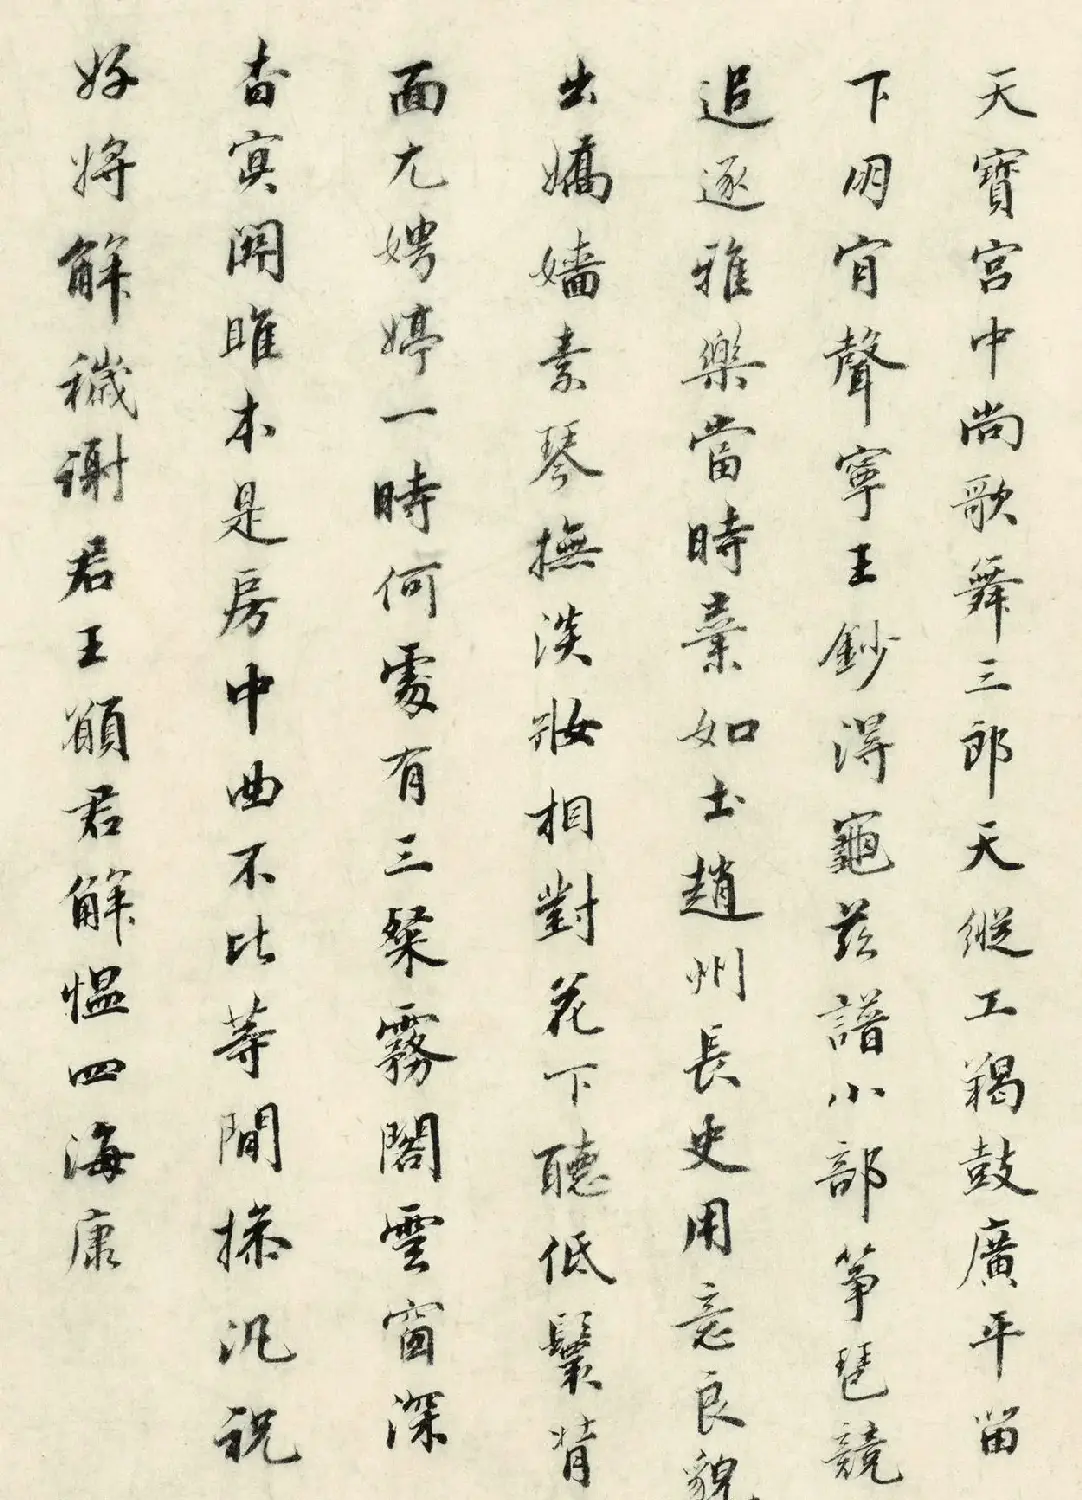 天寶宮中尚歌舞三郎天縱工羯鼓廣平留
下用宵聲寧王鈔得龜茲譜小部箏琶競
追逐雅樂當時棄如土趙州長史用意良貌
出嬌嬙素琴撫淡妝相對花下聽低鬟背
面尤娉婷一時何處有三粲霧閣雲窗深
杳冥關雎本是房中曲不比等閒操汎祝
好將解穢謝君王願君解慍四海康